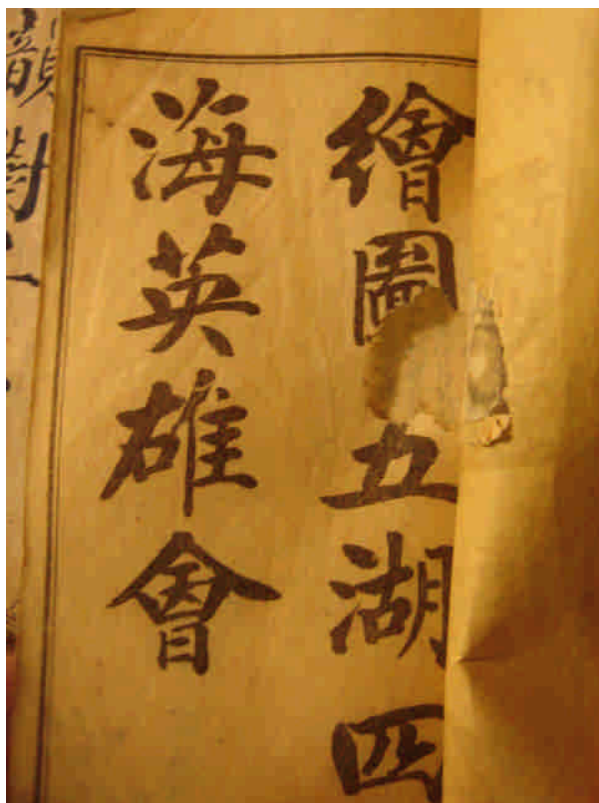 繪圖五湖四
海英雄會